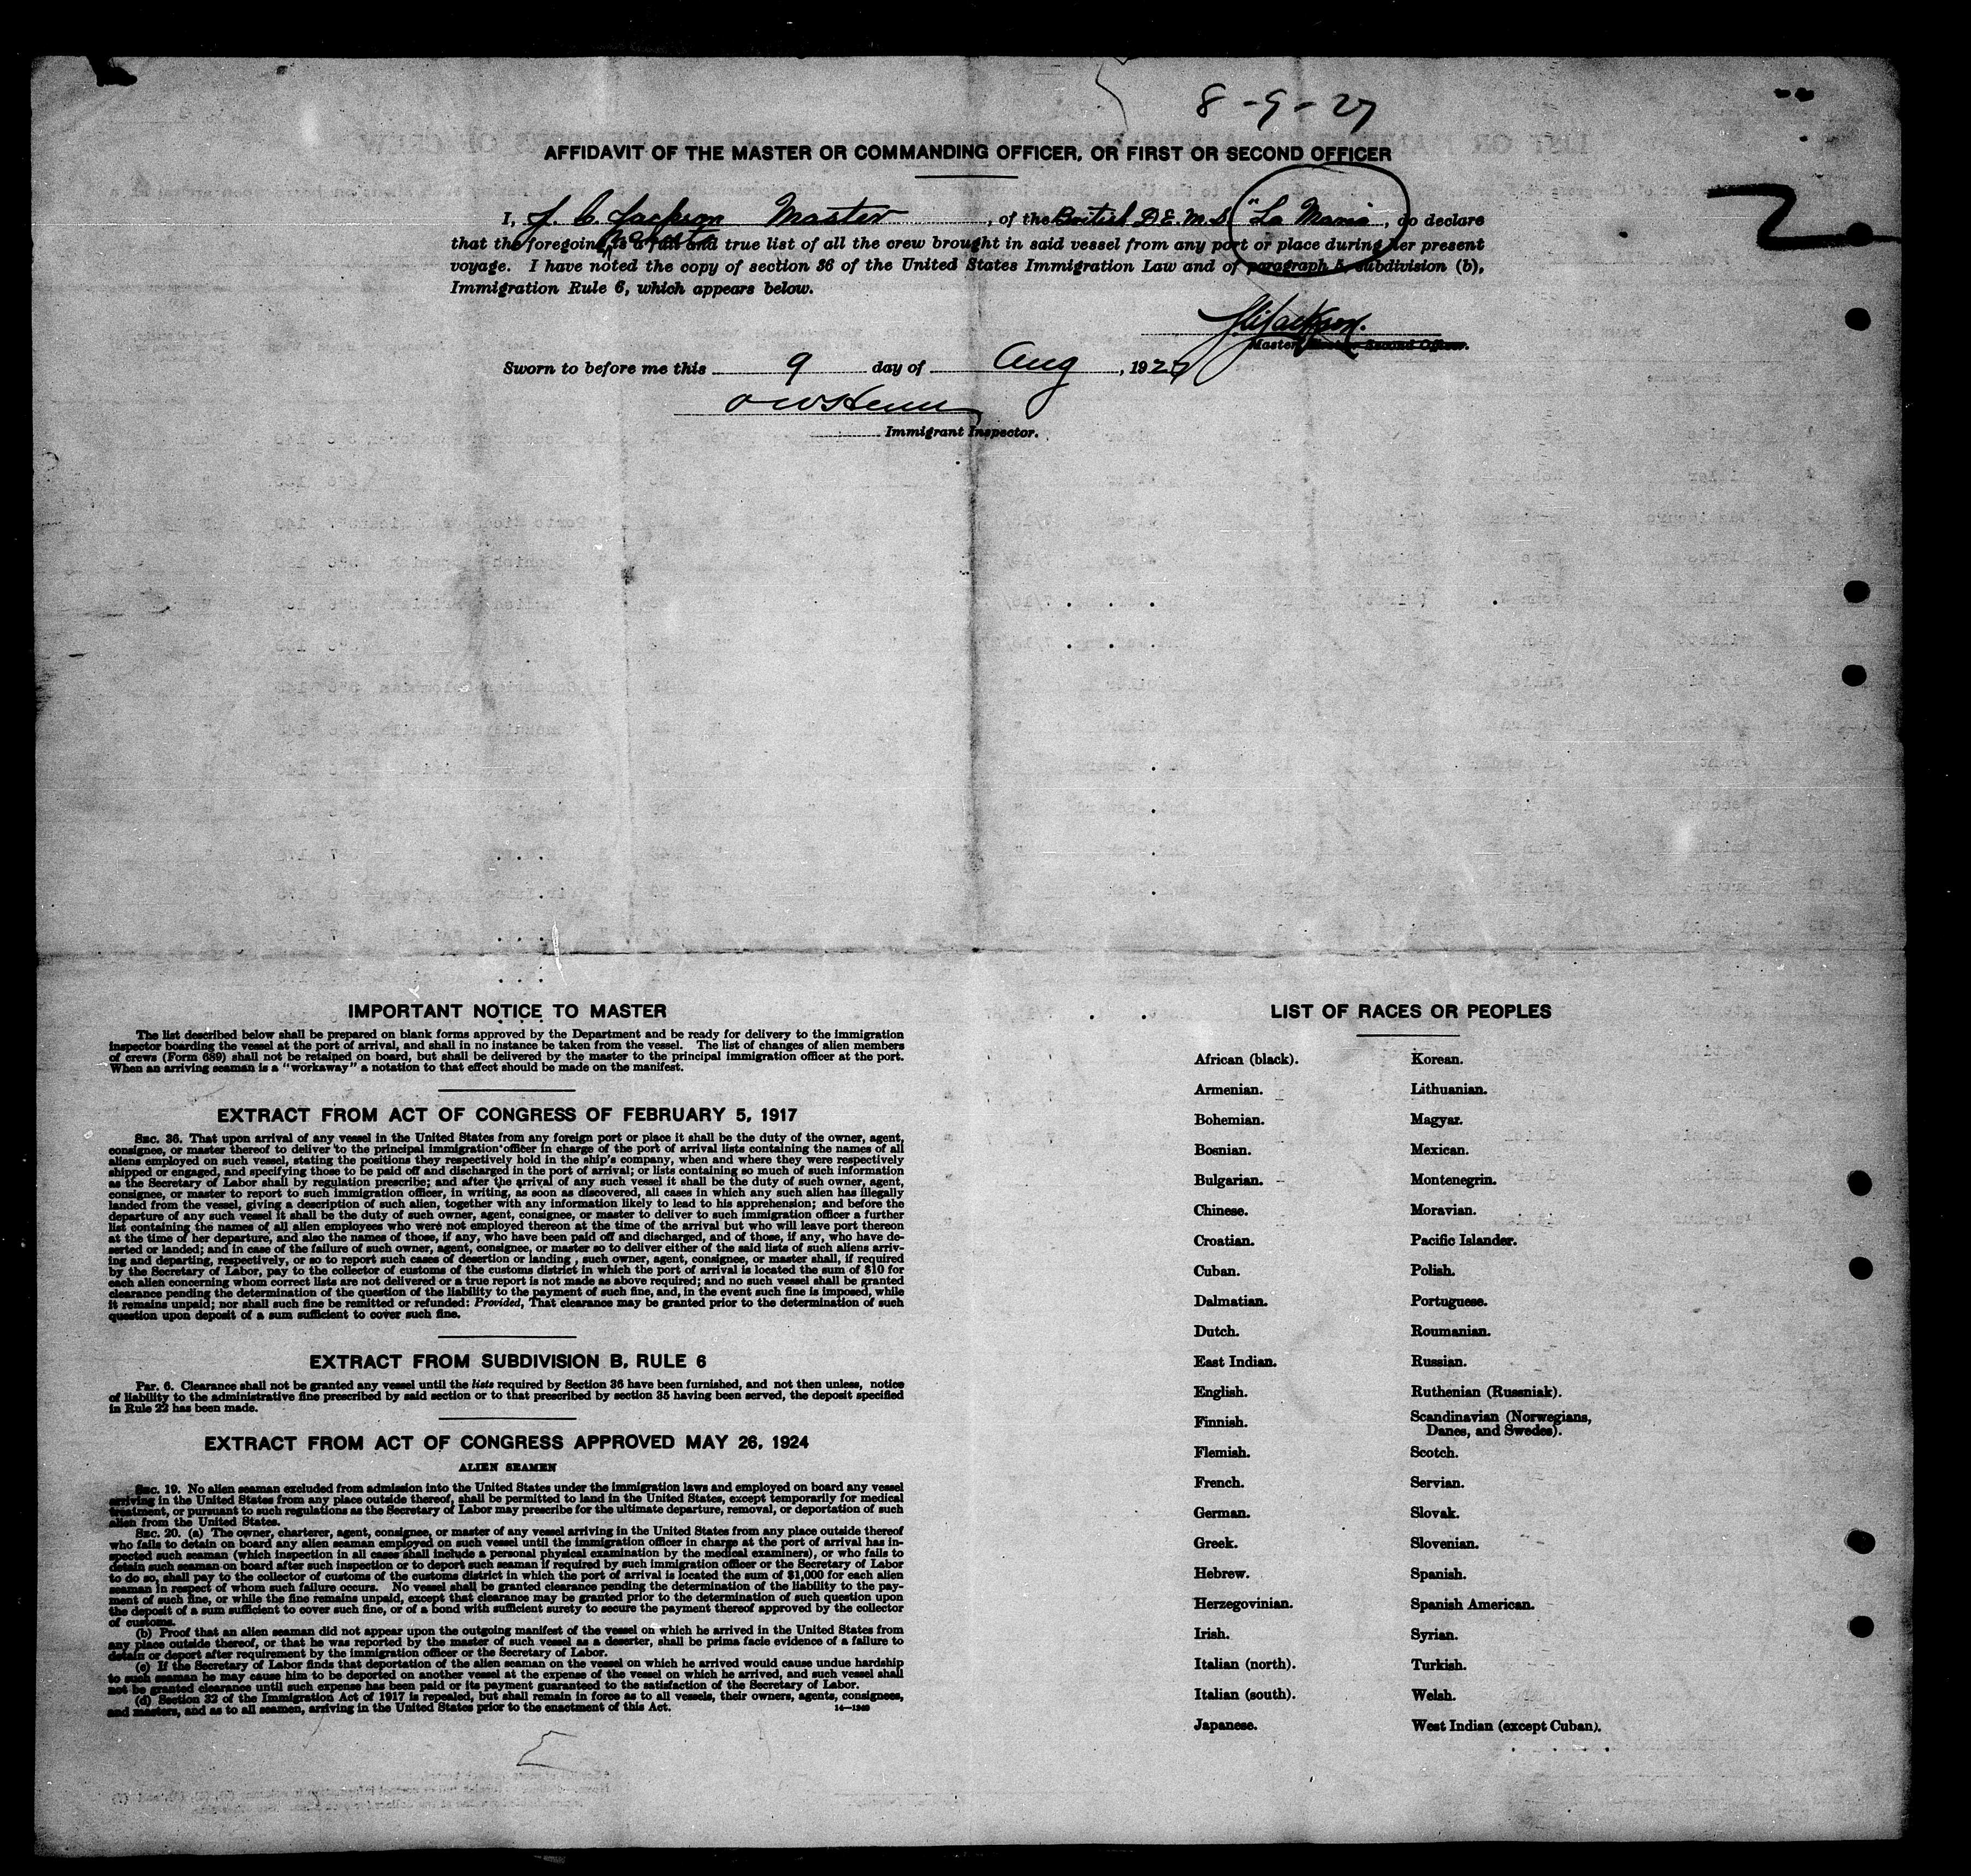 8-9-27
AFFIDAVIT OF THE MASTER OR COMMANDING OFFICER, OR FIRST OR SECOND OFFICER
2
I, J. C. Jackson Master, of the British "La Maria", do declare
that the foregoing is a full and true list of all the crew brought in said vessel from any port or place during her present
voyage. I have noted the copy of section 36 of the United States Immigration Law and of paragraph 5, subdivision (b),
Immigration Rule 6, which appears below.
Master, Second Officer.
Sworn to before me this 9 day of Aug, 1927
Immigrant Inspector.
IMPORTANT NOTICE TO MASTER
The list described below shall be prepared on blank forms approved by the Department and be ready for delivery to the immigration
inspector boarding the vessel at the port of arrival, and shall in no instance be taken from the vessel. The list of changes of alien members
of crews (Form 689) shall not be retained on board, but shall be delivered by the master to the principal immigration officer at the port.
When an arriving seaman is a "workaway" a notation to that effect should be made on the manifest.
EXTRACT FROM ACT OF CONGRESS OF FEBRUARY 5, 1917
SEC. 36. That upon arrival of any vessel in the United States from any foreign port or place it shall be the duty of the owner, agent,
consignee, or master thereof to deliver to the principal immigration officer in charge of the port of arrival lists containing the names of all
aliens employed on such vessel, stating the positions they respectively hold in the ship's company, when and where they were respectively
shipped or engaged, and specifying those to be paid off and discharged in the port of arrival; or lists containing so much of such information
as the Secretary of Labor shall by regulation prescribe; and after the arrival of any such vessel it shall be the duty of such owner, agent,
consignee, or master to report to such immigration officer, in writing, as soon as discovered, all cases in which any such alien has illegally
landed from the vessel, giving a description of such alien, together with any information likely to lead to his apprehension; and before the
departure of any such vessel it shall be the duty of such owner, agent, consignee, or master to deliver to such immigration officer a further
list containing the names of all alien employees who were not employed thereon at the time of the arrival but who will leave port thereon
at the time of her departure, and also the names of those, if any, who have been paid off and discharged, and of those, if any, who have de-
serted or landed; and in case of the failure of such owner, agent, consignee, or master so to deliver either of the said lists of such aliens arriv-
ing and departing, respectively, or so to report such cases of desertion or landing, such owner, agent, consignee, or master shall, if required
by the Secretary of Labor, pay to the collector of customs of the customs district in which the port of arrival is located the sum of $10 for
each alien concerning whom correct lists are not delivered or a true report is not made as above required; and no such vessel shall be granted
clearance pending the determination of the question of the liability to the payment of such fine, and, in the event such fine is imposed, while
it remains unpaid; nor shall such fine be remitted or refunded: Provided, That clearance may be granted prior to the determination of such
question upon deposit of a sum sufficient to cover such fine.
EXTRACT FROM SUBDIVISION B, RULE 6
PAR. 6. Clearance shall not be granted any vessel until the lists required by Section 36 have been furnished, and not then unless, notice
of liability to the administrative fine prescribed by said section or to that prescribed by section 35 having been served, the deposit specified
in Rule 22 has been made.
EXTRACT FROM ACT OF CONGRESS APPROVED MAY 26, 1924
ALIEN SEAMEN
SEC. 19. No alien seaman excluded from admission into the United States under the immigration laws and employed on board any vessel
arriving in the United States from any place outside thereof, shall be permitted to land in the United States, except temporarily for medical
treatment, or pursuant to such regulations as the Secretary of Labor may prescribe for the ultimate departure, removal, or deportation of such
alien from the United States.
SEC. 20. (a) The owner, charterer, agent, consignee, or master of any vessel arriving in the United States from any place outside thereof
who fails to detain on board any alien seaman employed on such vessel until the immigration officer in charge at the port of arrival has in-
spected such seaman (which inspection in all cases shall include a personal physical examination by the medical examiners), or who fails to
detain such seaman on board after such inspection or to deport such seaman if required by such immigration officer or the Secretary of Labor
to do so, shall pay to the collector of customs of the customs district in which the port of arrival is located the sum of $1,000 for each alien
seaman in respect of whom such failure occurs. No vessel shall be granted clearance pending the determination of the liability to the pay-
ment of such fine, or while the fine remains unpaid, except that clearance may be granted prior to the determination of such question upon
the deposit of a sum sufficient to cover such fine, or of a bond with sufficient surety to secure the payment thereof approved by the collector
of customs.
(b) Proof that an alien seaman did not appear upon the outgoing manifest of the vessel on which he arrived in the United States from
any place outside thereof, or that he was reported by the master of such vessel as a deserter, shall be prima facie evidence of a failure to
detain or deport after requirement by the immigration officer or the Secretary of Labor.
(c) If the Secretary of Labor finds that deportation of the alien seaman on the vessel on which he arrived would cause undue hardship
to such seaman he may cause him to be deported on another vessel at the expense of the vessel on which he arrived, and such vessel shall
not be granted clearance until such expense has been paid or its payment guaranteed to the satisfaction of the Secretary of Labor.
(d) Section 32 of the Immigration Act of 1917 is repealed, but shall remain in force as to all vessels, their owners, agents, consignees,
and masters, and as to all seamen, arriving in the United States prior to the enactment of this Act.
LIST OF RACES OR PEOPLES
African (black).
Armenian.
Bohemian.
Bosnian.
Bulgarian.
Chinese.
Croatian.
Cuban.
Dalmatian.
Dutch.
East Indian.
English.
Finnish.
Flemish.
French.
German.
Greek.
Hebrew.
Herzegovinian.
Irish.
Italian (north).
Italian (south).
Japanese.
Korean.
Lithuanian.
Magyar.
Mexican.
Montenegrin.
Moravian.
Pacific Islander.
Polish.
Portuguese.
Roumanian.
Russian.
Ruthenian (Russniak).
Scandinavian (Norwegians,
Danes, and Swedes).
Scotch.
Servian.
Slovak.
Slovenian.
Spanish.
Spanish American.
Syrian.
Turkish.
Welsh.
West Indian (except Cuban).